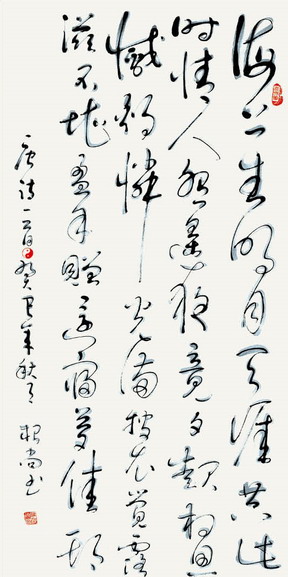 海上生明月天涯共此
时情人怨遥夜竟夕起相思
滅烛憐光满披衣覺露
滋不堪盈手赠還寝夢佳期
唐诗一首癸巳年秋月 书